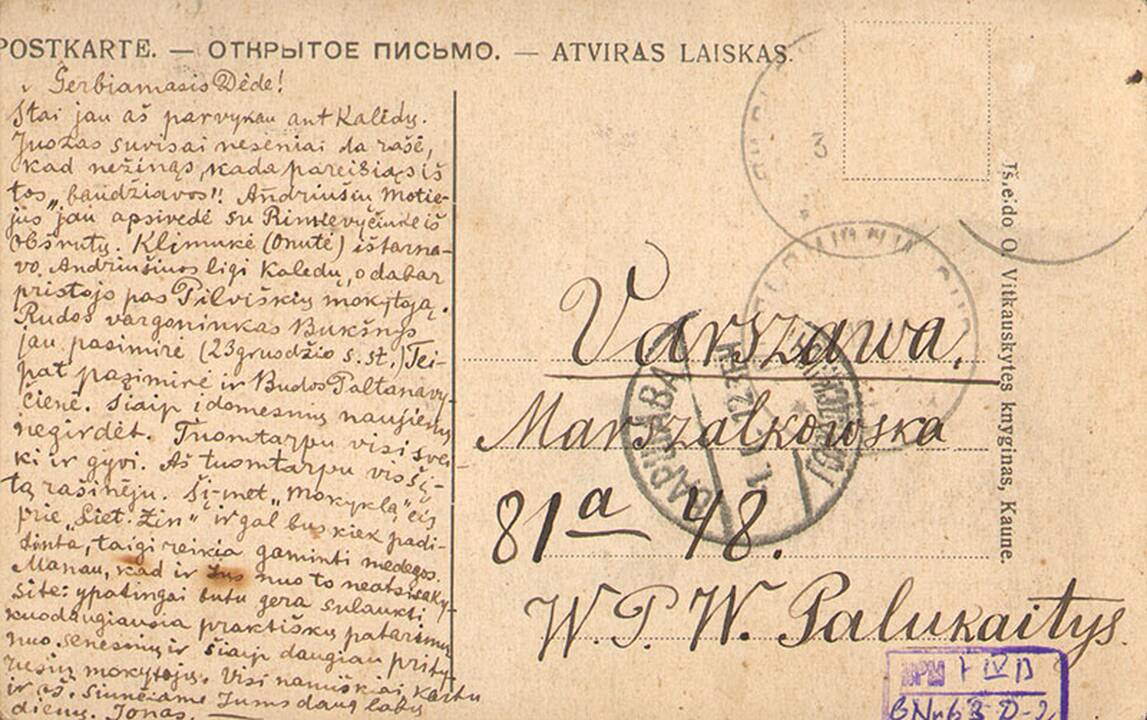 POSTKARTE. — ОТКРЫТОЕ ПИСЬМО. — ATVIRAS LAISKAS.
Gerbiamasis Dėde!
Štai jau aš parvykau ant Kalėdų.
Juozas suvisai neseniai da rašė,
kad nežinąs, kada pareisiąs iš
tos „baudžiavos"! Andriušių Motie-
jus jau apsivedė su Rinkevyčiuke iš
Obšrutų. Klimukė (Onutė) ištarna-
vo Andriušiuos ligi Kalėdų, o dabar
pristojo pas Pilviškių mokytoją.
Rudos vargoninkas Bukšnys
jau pasimirė (23 grudžio s. st.) Tei-
pat pasimirė ir Budos Paltanavy-
čienė. Šiaip įdomesnių naujienų
negirdėt. Tuomtarpu visi svei-
ki ir gyvi. Aš tuomtarpu vis šį-
tą rašinėju. Šį-met „Mokykla" eis
prie „Liet. Žin" ir gal bus kiek padi-
dinta, taigi reikia gaminti medegos.
Manau, kad ir Jus nuo to neatsisaky-
site: ypatingai butu gera sulaukti
kuodaugiausia praktiškų patarimų
nuo senesnių ir šiaip daugiau prity-
rusių mokytojų. Visi namiškiai kartu
ir aš siunčiame Jums daug labų
dienų. Jonas.
Varszawa.
Marszalkowska
81a 48.
W. P. W. Palukaitys.
Išleido O. Vitkauskytės knyginas, Kaune.
3
ВАРШАВА